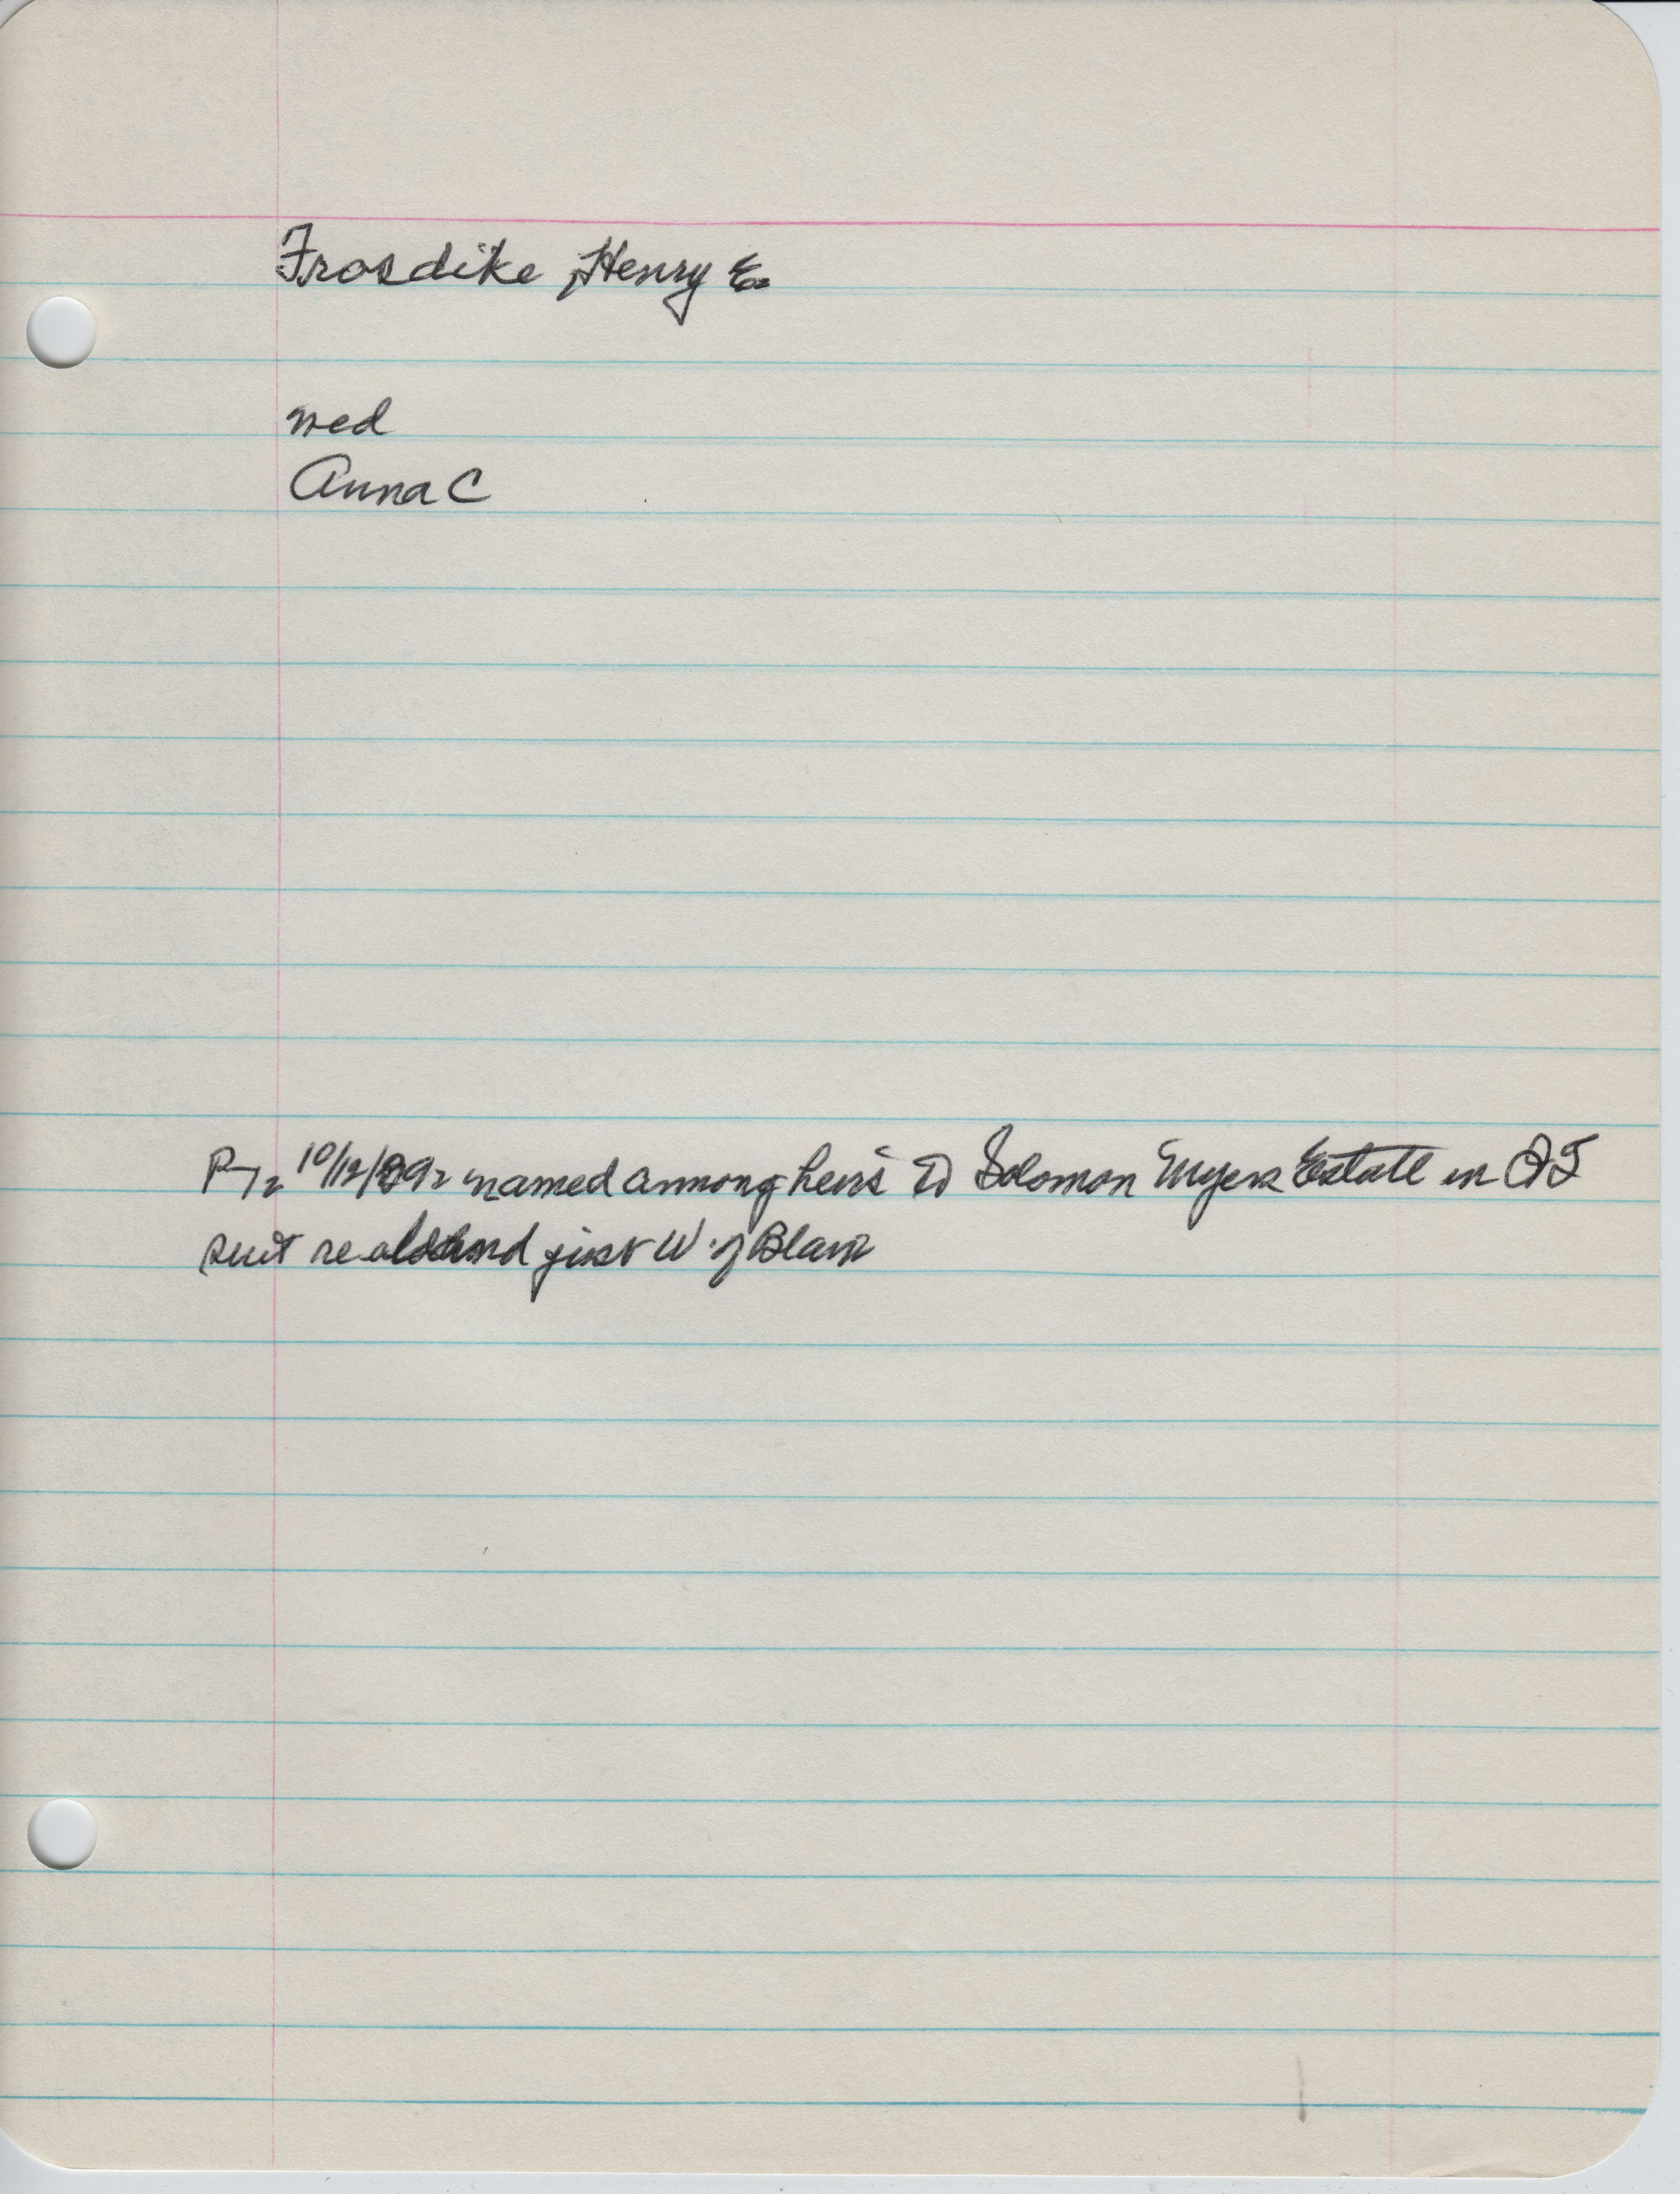 Frosdike Henry E.
med
Anna C
10/12/1892 named among heirs to Solomon Myers Estate in QT
suit re old land just W. of Blair